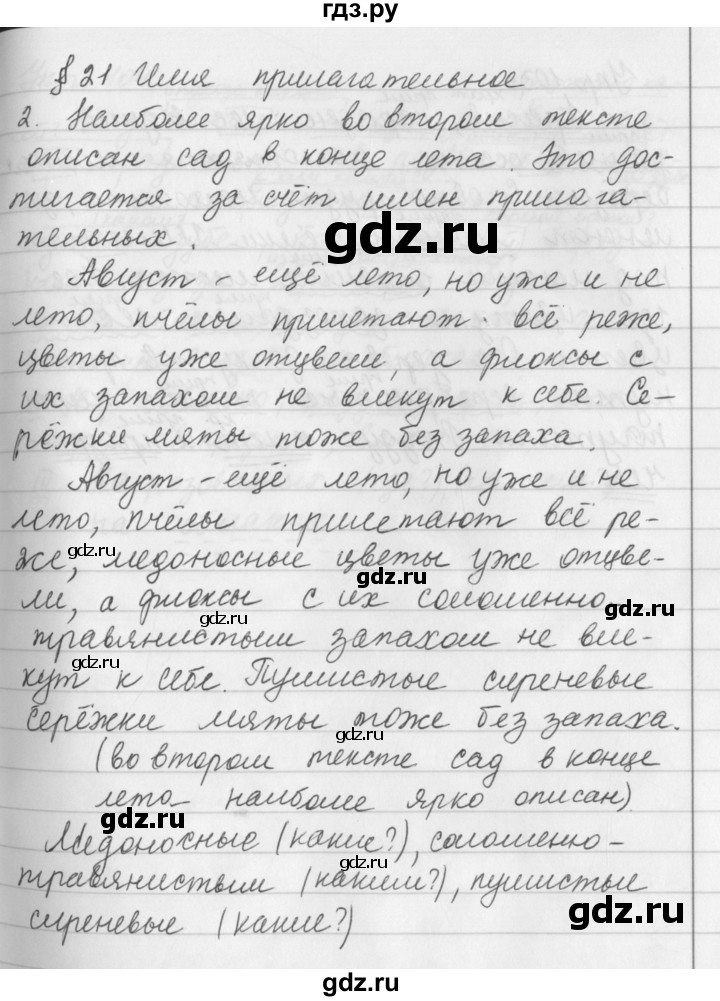 гдз.ру
§ 21 Имя прилагательное
2. Наиболее ярко во втором тексте
описан сад в конце лета. Это дос-
тигается за счёт имен прилага-
тельных.
gdz.ru
Август - ещё лето, но уже и не
лето, пчёлы прилетают всё реже,
цветы уже отцвели, а флоксы с
их запахом не влекут к себе. Се-
рёжки мяты тоже без запаха.
gdz.ru
Август - ещё лето, но уже и не
лето, пчёлы прилетают всё ре-
же, медоносные цветы уже отцве-
gdz.ru
gdz.ru
ли, а флоксы с их соломенно
gdz.ru
gdz.ru
травянистым запахом не вле-
кут к себе. Пушистые сиреневые
gdz.ru
серёжки мяты тоже без запаха.
gdz.ru
(во втором тексте сад в конце
лета наиболее ярко описан)
gdz.ru
Медоносные (какие?), соломенно-
gdz.ru
травянистым (каким?), пушистые
gdz.ru
сиреневые (какие?)
gdz.ru
gdz.ru